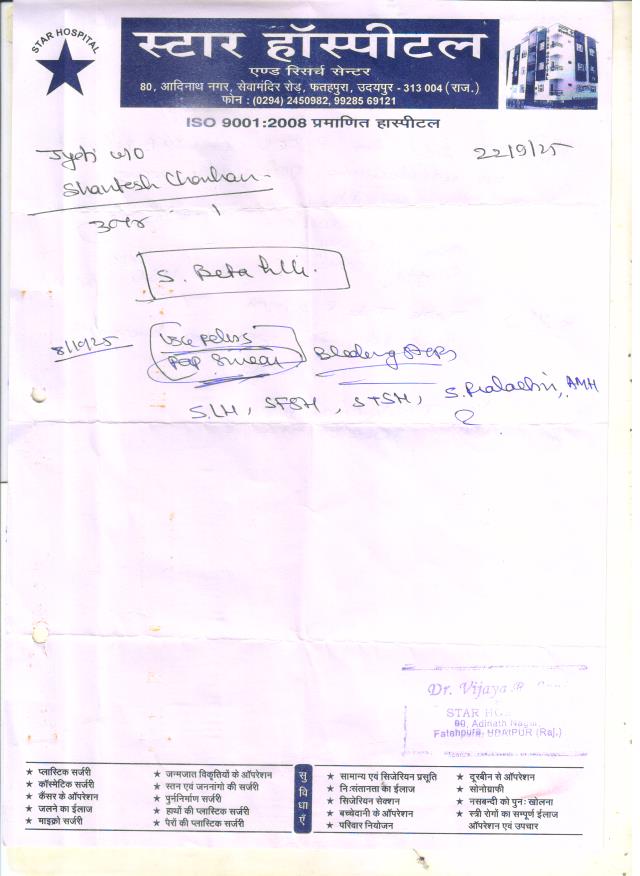 STAR HOSPITAL
स्टार हॉस्पीटल
एण्ड रिसर्च सेन्टर
80, आदिनाथ नगर, सेवामंदिर रोड़, फतहपुरा, उदयपुर - 313 004 (राज.)
फोन : (0294) 2450982, 99285 69121
ISO 9001:2008 प्रमाणित हास्पीटल
Jyoti w/o
22/9/25
Shantesh Chouhan
S. Beta hCG.
8/10/25
USG Pelvis
PAP Smear
Bleeding
S. LH, S FSH, S TSH, S. Prolactin, AMH
Dr. Vijaya
STAR
80, Adinath Nagar,
Fatehpura, UDAIPUR (Raj.)
सुविधाएँ
★ प्लास्टिक सर्जरी
★ कॉस्मेटिक सर्जरी
★ कैंसर के ऑपरेशन
★ जलने का ईलाज
★ माइक्रो सर्जरी
★ जन्मजात विकृतियों के ऑपरेशन
★ स्तन एवं जननांगो की सर्जरी
★ पुर्ननिर्माण सर्जरी
★ हाथों की प्लास्टिक सर्जरी
★ पैरों की प्लास्टिक सर्जरी
★ सामान्य एवं सिजेरियन प्रसूति
★ निःसंतानता का ईलाज
★ सिजेरियन सेक्शन
★ बच्चेदानी के ऑपरेशन
★ परिवार नियोजन
★ दूरबीन से ऑपरेशन
★ सोनोग्राफी
★ नसबन्दी को पुनः खोलना
★ स्त्री रोगों का सम्पूर्ण ईलाज
ऑपरेशन एवं उपचार